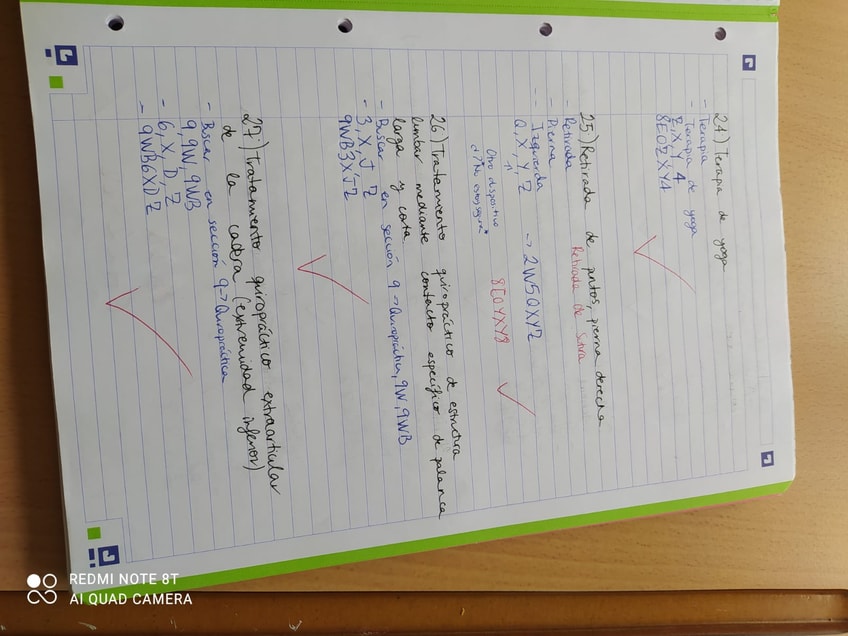 24) Terapia de yoga
- Terapia
- Terapia de yoga
Z, X, Y, 4
8E0ZXY4
25) Retirada de puntos, pierna derecha
- Retirada Retirada de Sutura
- Pierna
- Izquierda
Q, X, Y, Z → 2W5QXYZ
Otro dispositivo
8E0YXY8
26) Tratamiento quiropráctico de estructura
lumbar mediante contacto específico de palanca
larga y corta
- Buscar en sección 9 → Quiropráctica, 9W, 9WB
- 3, X, J, Z
9WB3XJZ
27) Tratamiento quiropráctico extraarticular
de la cadera (extremidad inferior)
- Buscar en sección 9 → Quiropráctica
9, 9W, 9WB
- 6, X, D, Z
- 9WB6XDZ
REDMI NOTE 8T
AI QUAD CAMERA